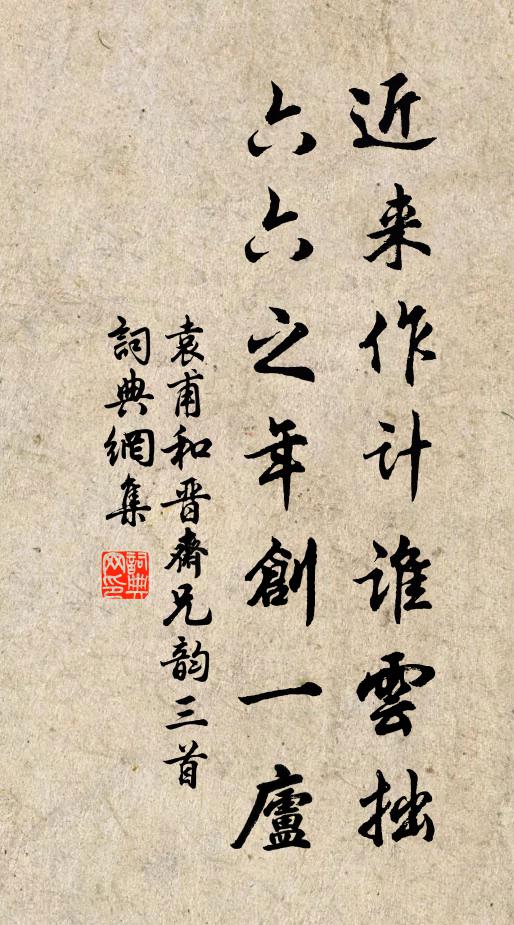 近来作计谁雲拙
六六之年創一廬
袁甫和晋齋兄韵三首
詞典網集
詞典网印